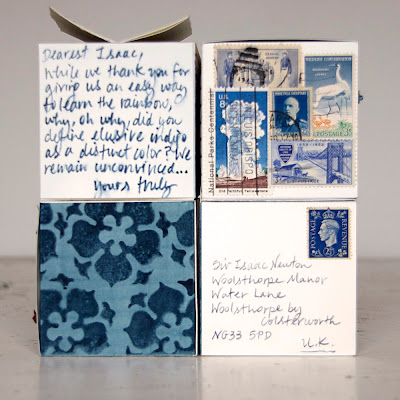 Dearest Isaac,
While we thank you for
giving us an easy way
to learn the rainbow,
why, oh why, did you
define elusive indigo
as a distinct color? We
remain unconvinced...
yours truly
WILDLIFE CONSERVATION
POSTAGE 3¢
National Parks Centennial
U.S.
8c
Old Faithful, Yellowstone
POSTAGE
REVENUE
2½
Sir Isaac Newton
Woolsthorpe Manor
Water Lane
Woolsthorpe by
Colsterworth
NG33 5PD
U.K.